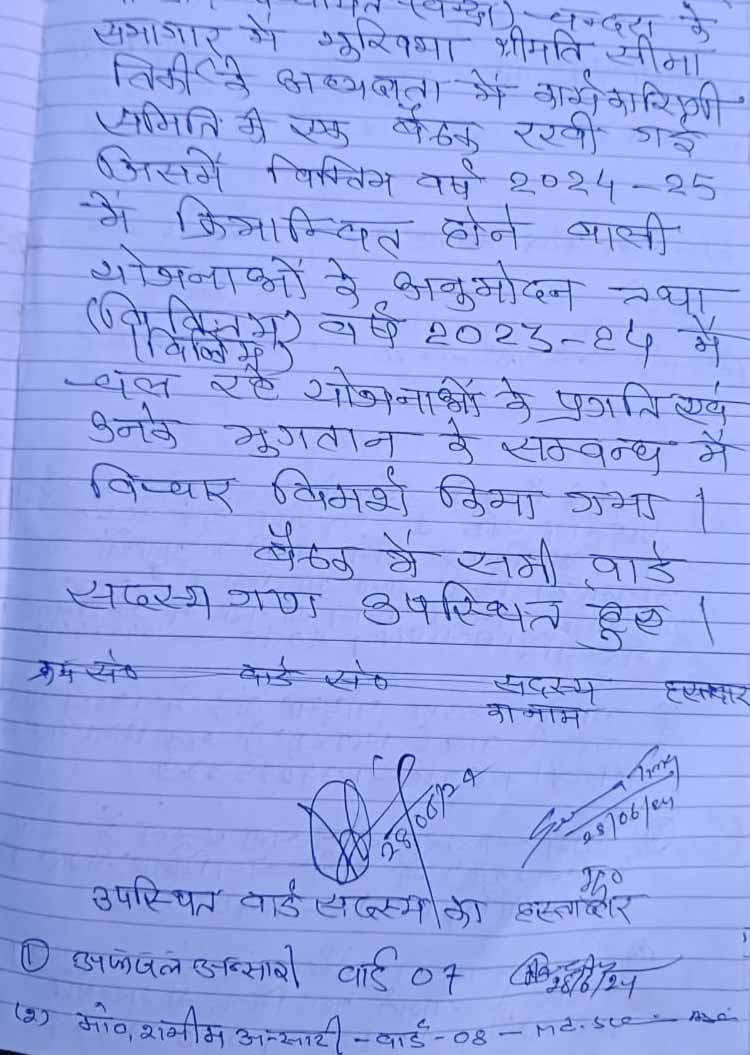 के
सभागार में मुखिया श्रीमति सीमा
तिर्की के अध्यक्षता में कार्यकारिणी
समिति की एक बैठक रखी गई
जिसमें वित्तिय वर्ष 2024-25
में क्रियान्वित होने वाली
योजनाओं के अनुमोदन तथा
वर्ष 2023-24 में
चल रहे योजनाओं के प्रगति एवं
उनके भुगतान के सम्बन्ध में
विचार विमर्श किया गया |
बैठक में सभी वार्ड
सदस्य गण उपस्थित हुए |
क्रम सं० वार्ड सं० सदस्य हस्ताक्षर
का नाम
28/06/24
28/06/24
उपस्थित वार्ड सदस्य का हस्ताक्षर
① अन्सारी वार्ड 07 28/6/24
(2) मो०, शमीम अन्सारी - वार्ड - 08 -